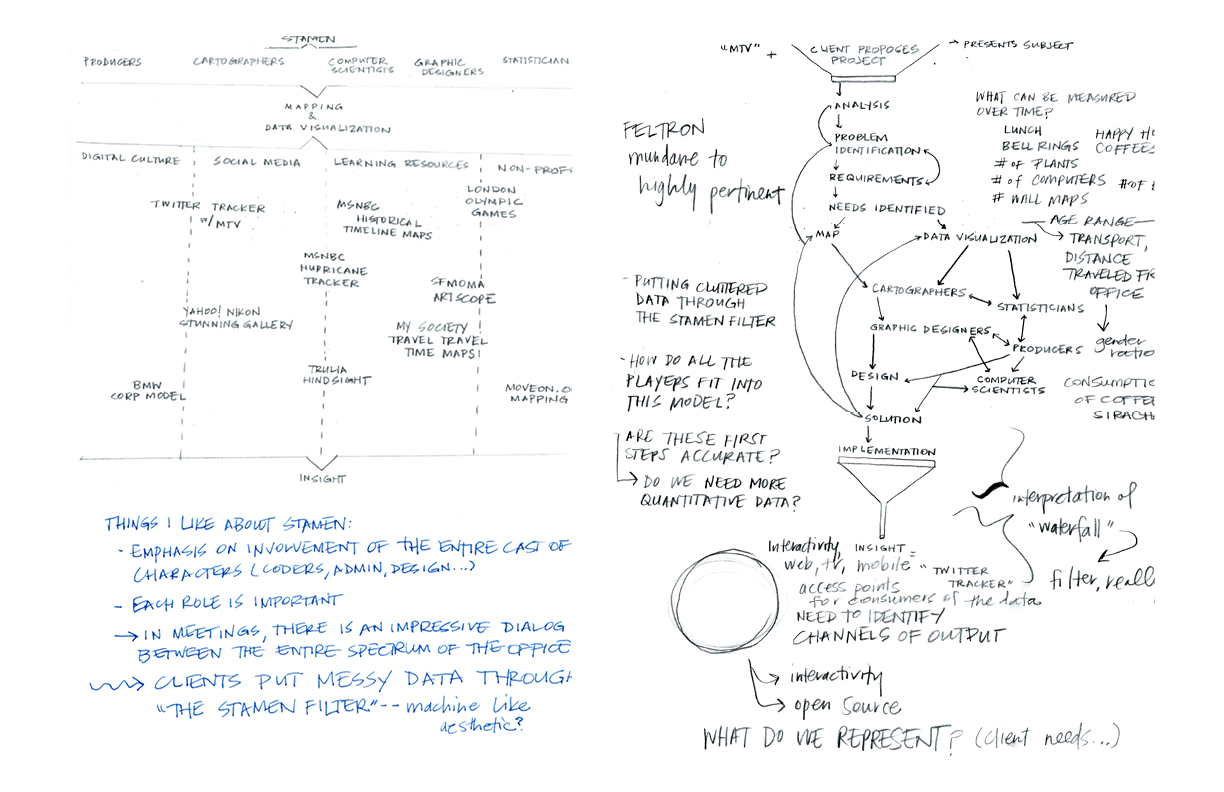 STAMEN
PRODUCERS
CARTOGRAPHERS
COMPUTER
SCIENTISTS
GRAPHIC
DESIGNERS
STATISTICIAN
MAPPING
&
DATA VISUALIZATION
DIGITAL CULTURE
SOCIAL MEDIA
LEARNING RESOURCES
NON-PROF
TWITTER TRACKER
w/ MTV
MSNBC
HISTORICAL
TIMELINE MAPS
LONDON
OLYMPIC
GAMES
MSNBC
HURRICANE
TRACKER
SFMOMA
ARTSCOPE
YAHOO! NIKON
STUNNING GALLERY
MY SOCIETY
TRAVEL TRAVEL
TIME MAPS!
TRULIA
HINDSIGHT
BMW
CORP MODEL
MOVEON.O
MAPPING
INSIGHT
THINGS I LIKE ABOUT STAMEN:
- EMPHASIS ON INVOLVEMENT OF THE ENTIRE CAST OF
CHARACTERS (CODERS, ADMIN, DESIGN...)
- EACH ROLE IS IMPORTANT
→ IN MEETINGS, THERE IS AN IMPRESSIVE DIALOG
BETWEEN THE ENTIRE SPECTRUM OF THE OFFICE
→ CLIENTS PUT MESSY DATA THROUGH
"THE STAMEN FILTER" -- machine like
aesthetic?
"MTV" +
CLIENT PROPOSES
PROJECT
→ PRESENTS SUBJECT
ANALYSIS
PROBLEM
IDENTIFICATION
REQUIREMENTS
NEEDS IDENTIFIED
MAP
DATA VISUALIZATION
CARTOGRAPHERS
STATISTICIANS
GRAPHIC DESIGNERS
PRODUCERS
DESIGN
COMPUTER
SCIENTISTS
SOLUTION
IMPLEMENTATION
FELTRON
mundane to
highly pertinent
- PUTTING CLUTTERED
DATA THROUGH
THE STAMEN FILTER
- HOW DO ALL THE
PLAYERS FIT INTO
THIS MODEL?
ARE THESE FIRST
STEPS ACCURATE?
→ DO WE NEED MORE
QUANTITATIVE DATA?
WHAT CAN BE MEASURED
OVER TIME?
LUNCH
BELL RINGS
# of PLANTS
# of COMPUTERS
# WALL MAPS
HAPPY H
COFFEES
# OF
AGE RANGE
TRANSPORT,
DISTANCE
TRAVELED FR
OFFICE
gender
ratio
CONSUMPTIC
OF COFFE
SIRACH
interpretation of
"waterfall"
filter, reall
Interactivity, INSIGHT =
web, tv, mobile "TWITTER
TRACKER"
access points
for consumers of the data
NEED TO IDENTIFY
CHANNELS OF OUTPUT
→ interactivity
→ open source
WHAT DO WE REPRESENT? (client needs...)